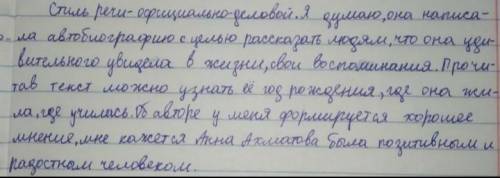 Стиль речи-официально-деловой. Я думаю, она написа-
ла автобиографию с целью рассказать людям, что она уди-
вительного увидела в жизни, свои воспоминания. Прочи-
тав текст можно узнать её год рождения, где она жи-
ла, где училась. Об авторе у меня формируется хорошее
мнение, мне кажется Анна Ахматова была позитивным и
радостным человеком.